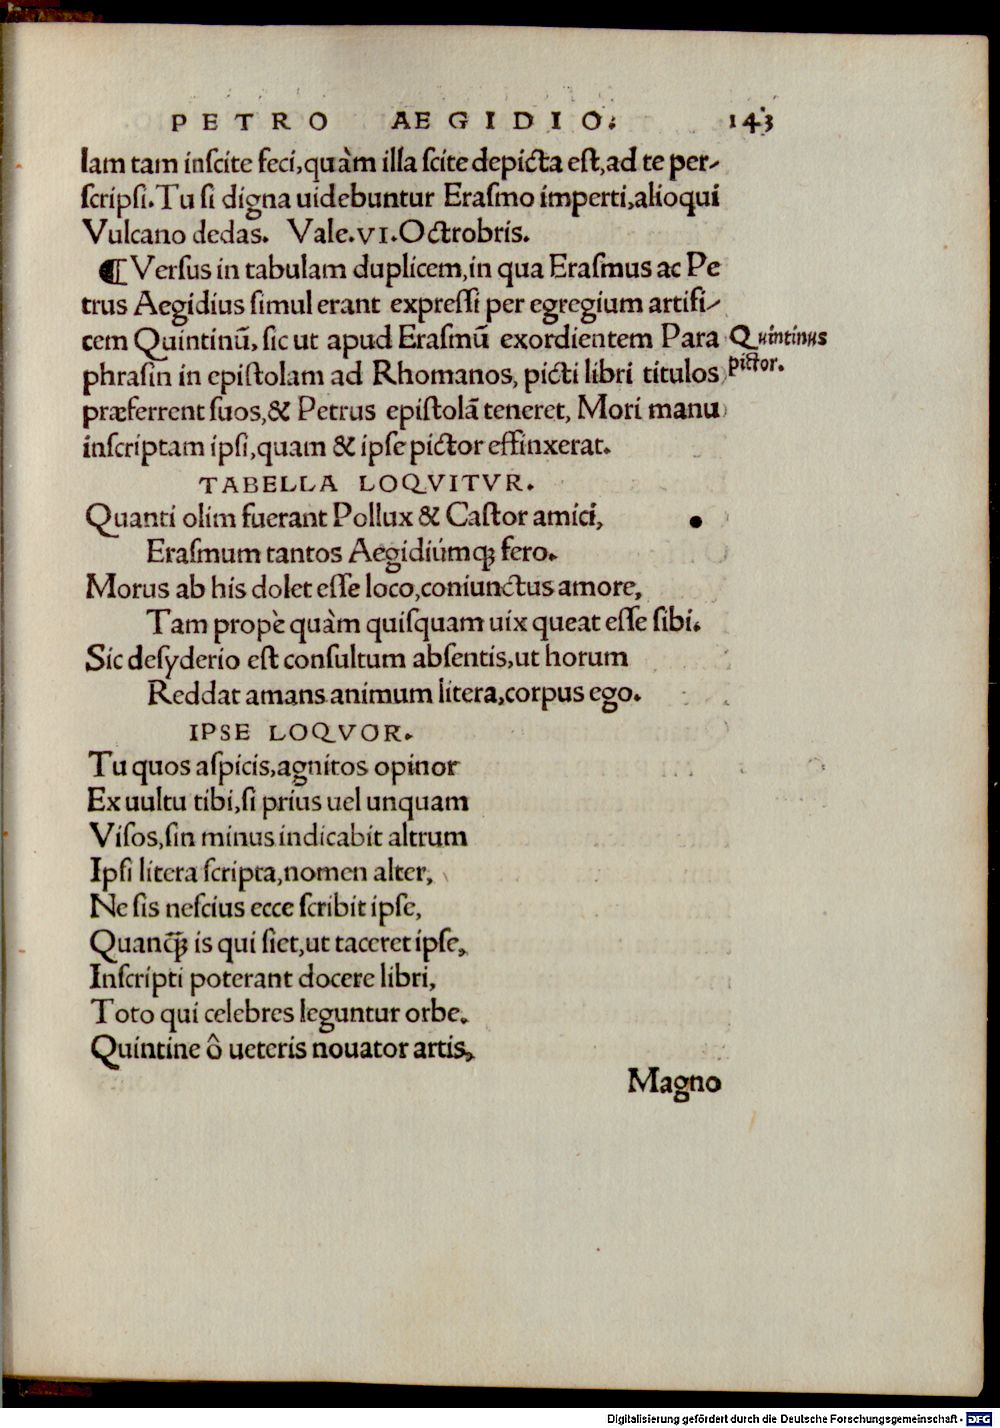 PETRO AEGIDIO. 143
lam tam inſcite feci, quàm illa ſcite depicta eſt, ad te per-
ſcripſi. Tu ſi digna uidebuntur Eraſmo imperti, alioqui
Vulcano dedas. Vale. VI. Octrobris.
¶ Verſus in tabulam duplicem, in qua Eraſmus ac Pe
trus Aegidius ſimul erant expreſſi per egregium artifi-
cem Quintinū, ſic ut apud Eraſmū exordientem Para
Quintinus
phraſin in epiſtolam ad Rhomanos, picti libri titulos
pictor.
præferrent ſuos, & Petrus epiſtolā teneret, Mori manu
inſcriptam ipſi, quam & ipſe pictor effinxerat.
TABELLA LOQVITVR.
Quanti olim fuerant Pollux & Caſtor amici,
Eraſmum tantos Aegidiúmꝗ fero.
Morus ab his dolet eſſe loco, coniunctus amore,
Tam propè quàm quiſquam uix queat eſſe ſibi.
Sic deſyderio eſt conſultum abſentis, ut horum
Reddat amans animum litera, corpus ego.
IPSE LOQVOR.
Tu quos aſpicis, agnitos opinor
Ex uultu tibi, ſi prius uel unquam
Viſos, ſin minus indicabit altrum
Ipſi litera ſcripta, nomen alter,
Ne ſis neſcius ecce ſcribit ipſe,
Quancꝗ̄ is qui ſiet, ut taceret ipſe,
Inſcripti poterant docere libri,
Toto qui celebres leguntur orbe.
Quintine ô ueteris nouator artis,
Magno
Digitalisierung gefördert durch die Deutsche Forschungsgemeinschaft - DFG